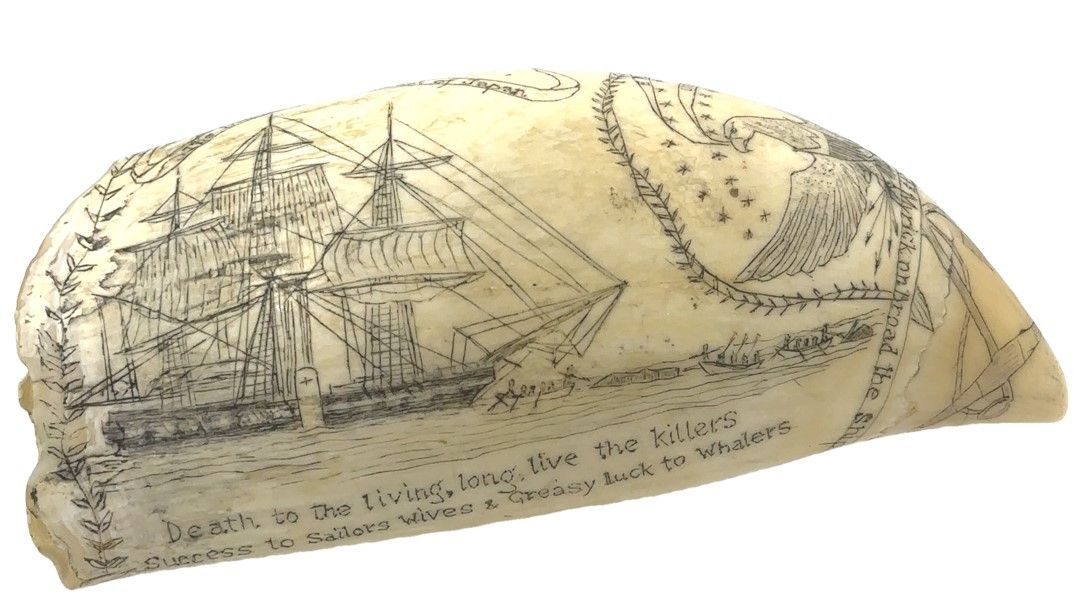 of Japan
Myrick on broad the Shi
Death to the living, long live the killers
Success to Sailors wives & Greasy luck to whalers